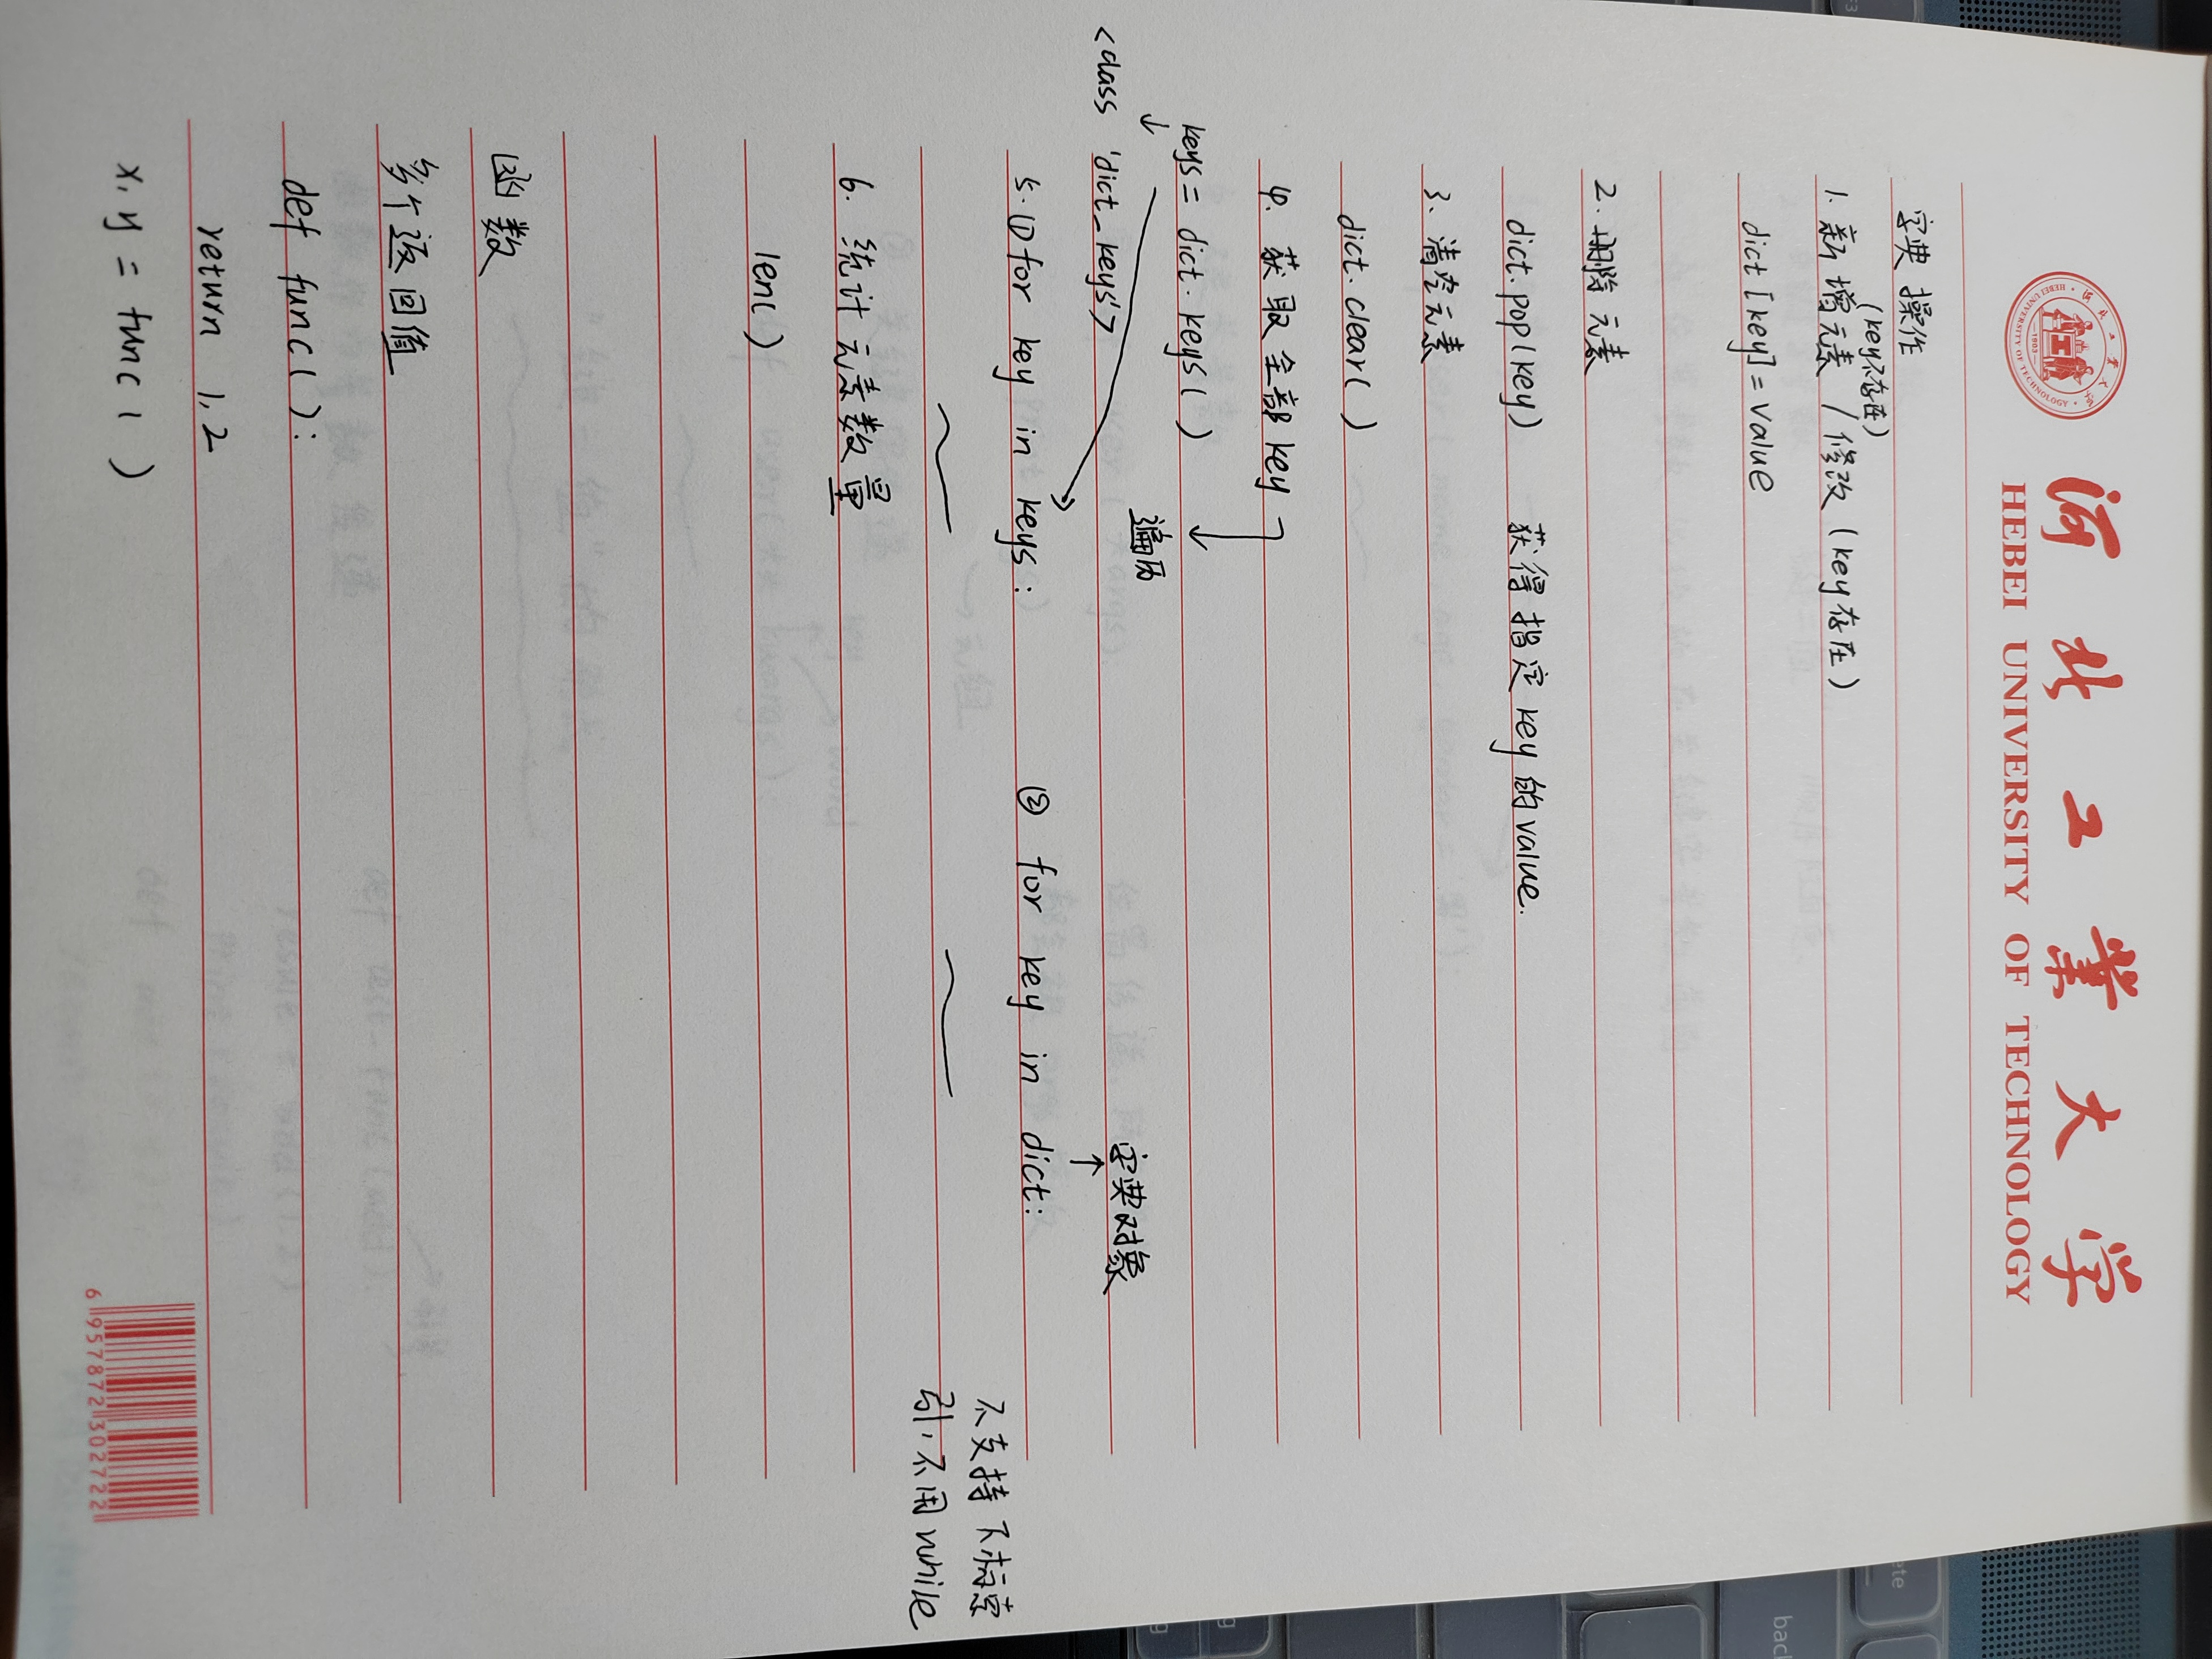 河北工業大学
HEBEI UNIVERSITY OF TECHNOLOGY
字典操作
(key不存在)
1. 新增元素 / 修改 (key存在)
dict[key]=value
2. 删除元素
dict.pop(key) 获得指定key的value.
3. 清空元素
dict.clear( )
4. 获取全部key
keys= dict.keys( )
遍历
<class 'dict_keys'>
字典对象
5. ①for key in keys: ② for key in dict:
不支持下标索
引,不用while
6. 统计元素数量
len( )
函数
多个返回值
def func( ):
return 1,2
x,y = func( )
6 957872 302722